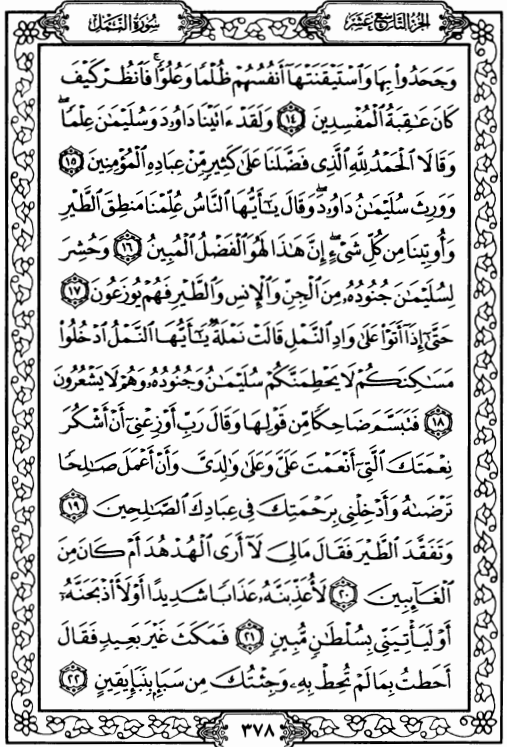 الجزء التاسع عشر
سورة النمل
وَجَحَدُوا۟ بِهَا وَٱسْتَيْقَنَتْهَآ أَنفُسُهُمْ ظُلْمًا وَعُلُوًّا ۚ فَٱنظُرْ كَيْفَ
كَانَ عَٰقِبَةُ ٱلْمُفْسِدِينَ ١٤ وَلَقَدْ ءَاتَيْنَا دَاوُۥدَ وَسُلَيْمَٰنَ عِلْمًا ۖ
وَقَالَا ٱلْحَمْدُ لِلَّهِ ٱلَّذِى فَضَّلَنَا عَلَىٰ كَثِيرٍ مِّنْ عِبَادِهِ ٱلْمُؤْمِنِينَ ١٥
وَوَرِثَ سُلَيْمَٰنُ دَاوُۥدَ ۖ وَقَالَ يَٰٓأَيُّهَا ٱلنَّاسُ عُلِّمْنَا مَنطِقَ ٱلطَّيْرِ
وَأُوتِينَا مِن كُلِّ شَىْءٍ ۖ إِنَّ هَٰذَا لَهُوَ ٱلْفَضْلُ ٱلْمُبِينُ ١٦ وَحُشِرَ
لِسُلَيْمَٰنَ جُنُودُهُۥ مِنَ ٱلْجِنِّ وَٱلْإِنسِ وَٱلطَّيْرِ فَهُمْ يُوزَعُونَ ١٧
حَتَّىٰٓ إِذَآ أَتَوْا۟ عَلَىٰ وَادِ ٱلنَّمْلِ قَالَتْ نَمْلَةٌ يَٰٓأَيُّهَا ٱلنَّمْلُ ٱدْخُلُوا۟
مَسَٰكِنَكُمْ لَا يَحْطِمَنَّكُمْ سُلَيْمَٰنُ وَجُنُودُهُۥ وَهُمْ لَا يَشْعُرُونَ
١٨ فَتَبَسَّمَ ضَاحِكًا مِّن قَوْلِهَا وَقَالَ رَبِّ أَوْزِعْنِىٓ أَنْ أَشْكُرَ
نِعْمَتَكَ ٱلَّتِىٓ أَنْعَمْتَ عَلَىَّ وَعَلَىٰ وَٰلِدَىَّ وَأَنْ أَعْمَلَ صَٰلِحًا
تَرْضَىٰهُ وَأَدْخِلْنِى بِرَحْمَتِكَ فِى عِبَادِكَ ٱلصَّٰلِحِينَ ١٩
وَتَفَقَّدَ ٱلطَّيْرَ فَقَالَ مَالِىَ لَآ أَرَى ٱلْهُدْهُدَ أَمْ كَانَ مِنَ
ٱلْغَآئِبِينَ ٢٠ لَأُعَذِّبَنَّهُۥ عَذَابًا شَدِيدًا أَوْ لَأَا۟ذْبَحَنَّهُۥٓ
أَوْ لَيَأْتِيَنِّى بِسُلْطَٰنٍ مُّبِينٍ ٢١ فَمَكَثَ غَيْرَ بَعِيدٍ فَقَالَ
أَحَطتُ بِمَا لَمْ تُحِطْ بِهِۦ وَجِئْتُكَ مِن سَبَإٍ بِنَبَإٍ يَقِينٍ ٢٢
٣٧٨